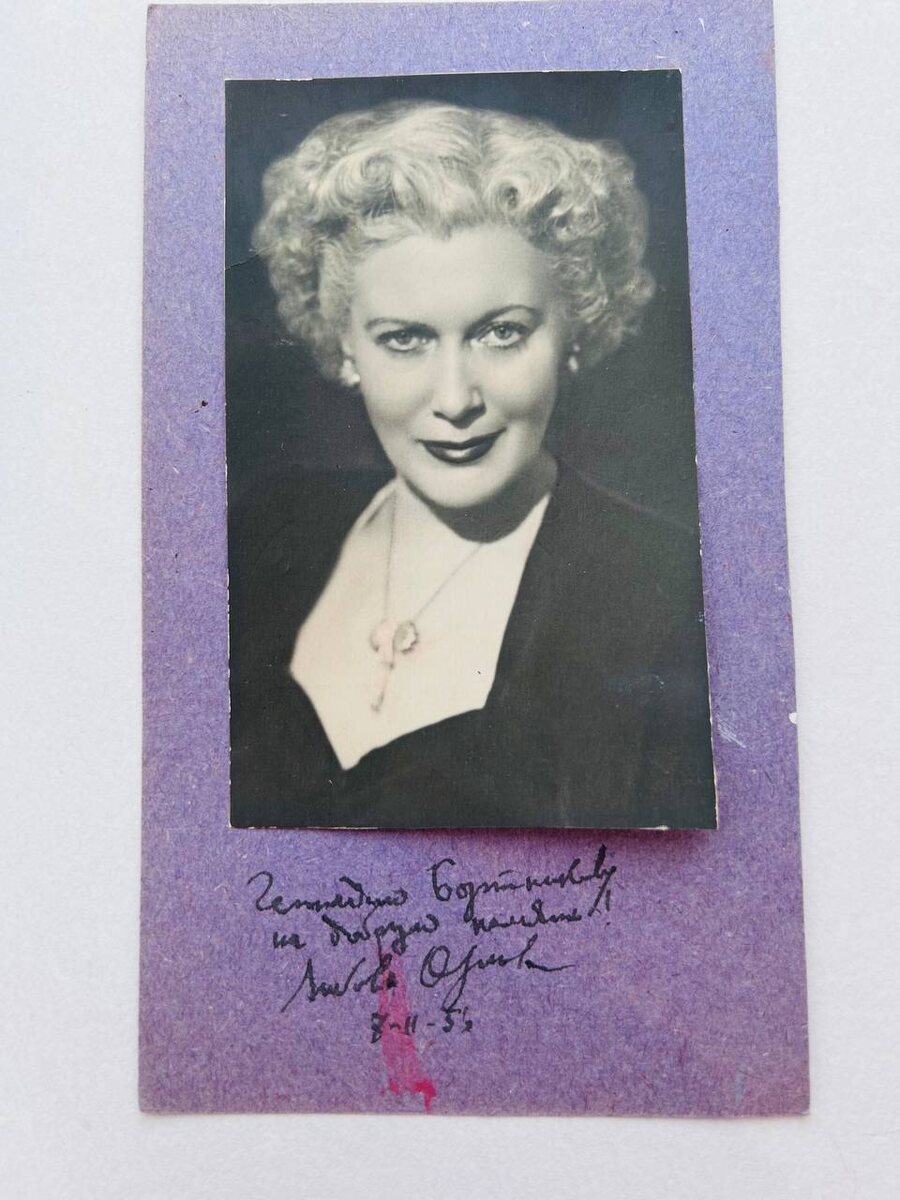 Геннадию Бортникову
на добрую память!
Любовь Орлова
7-II-5